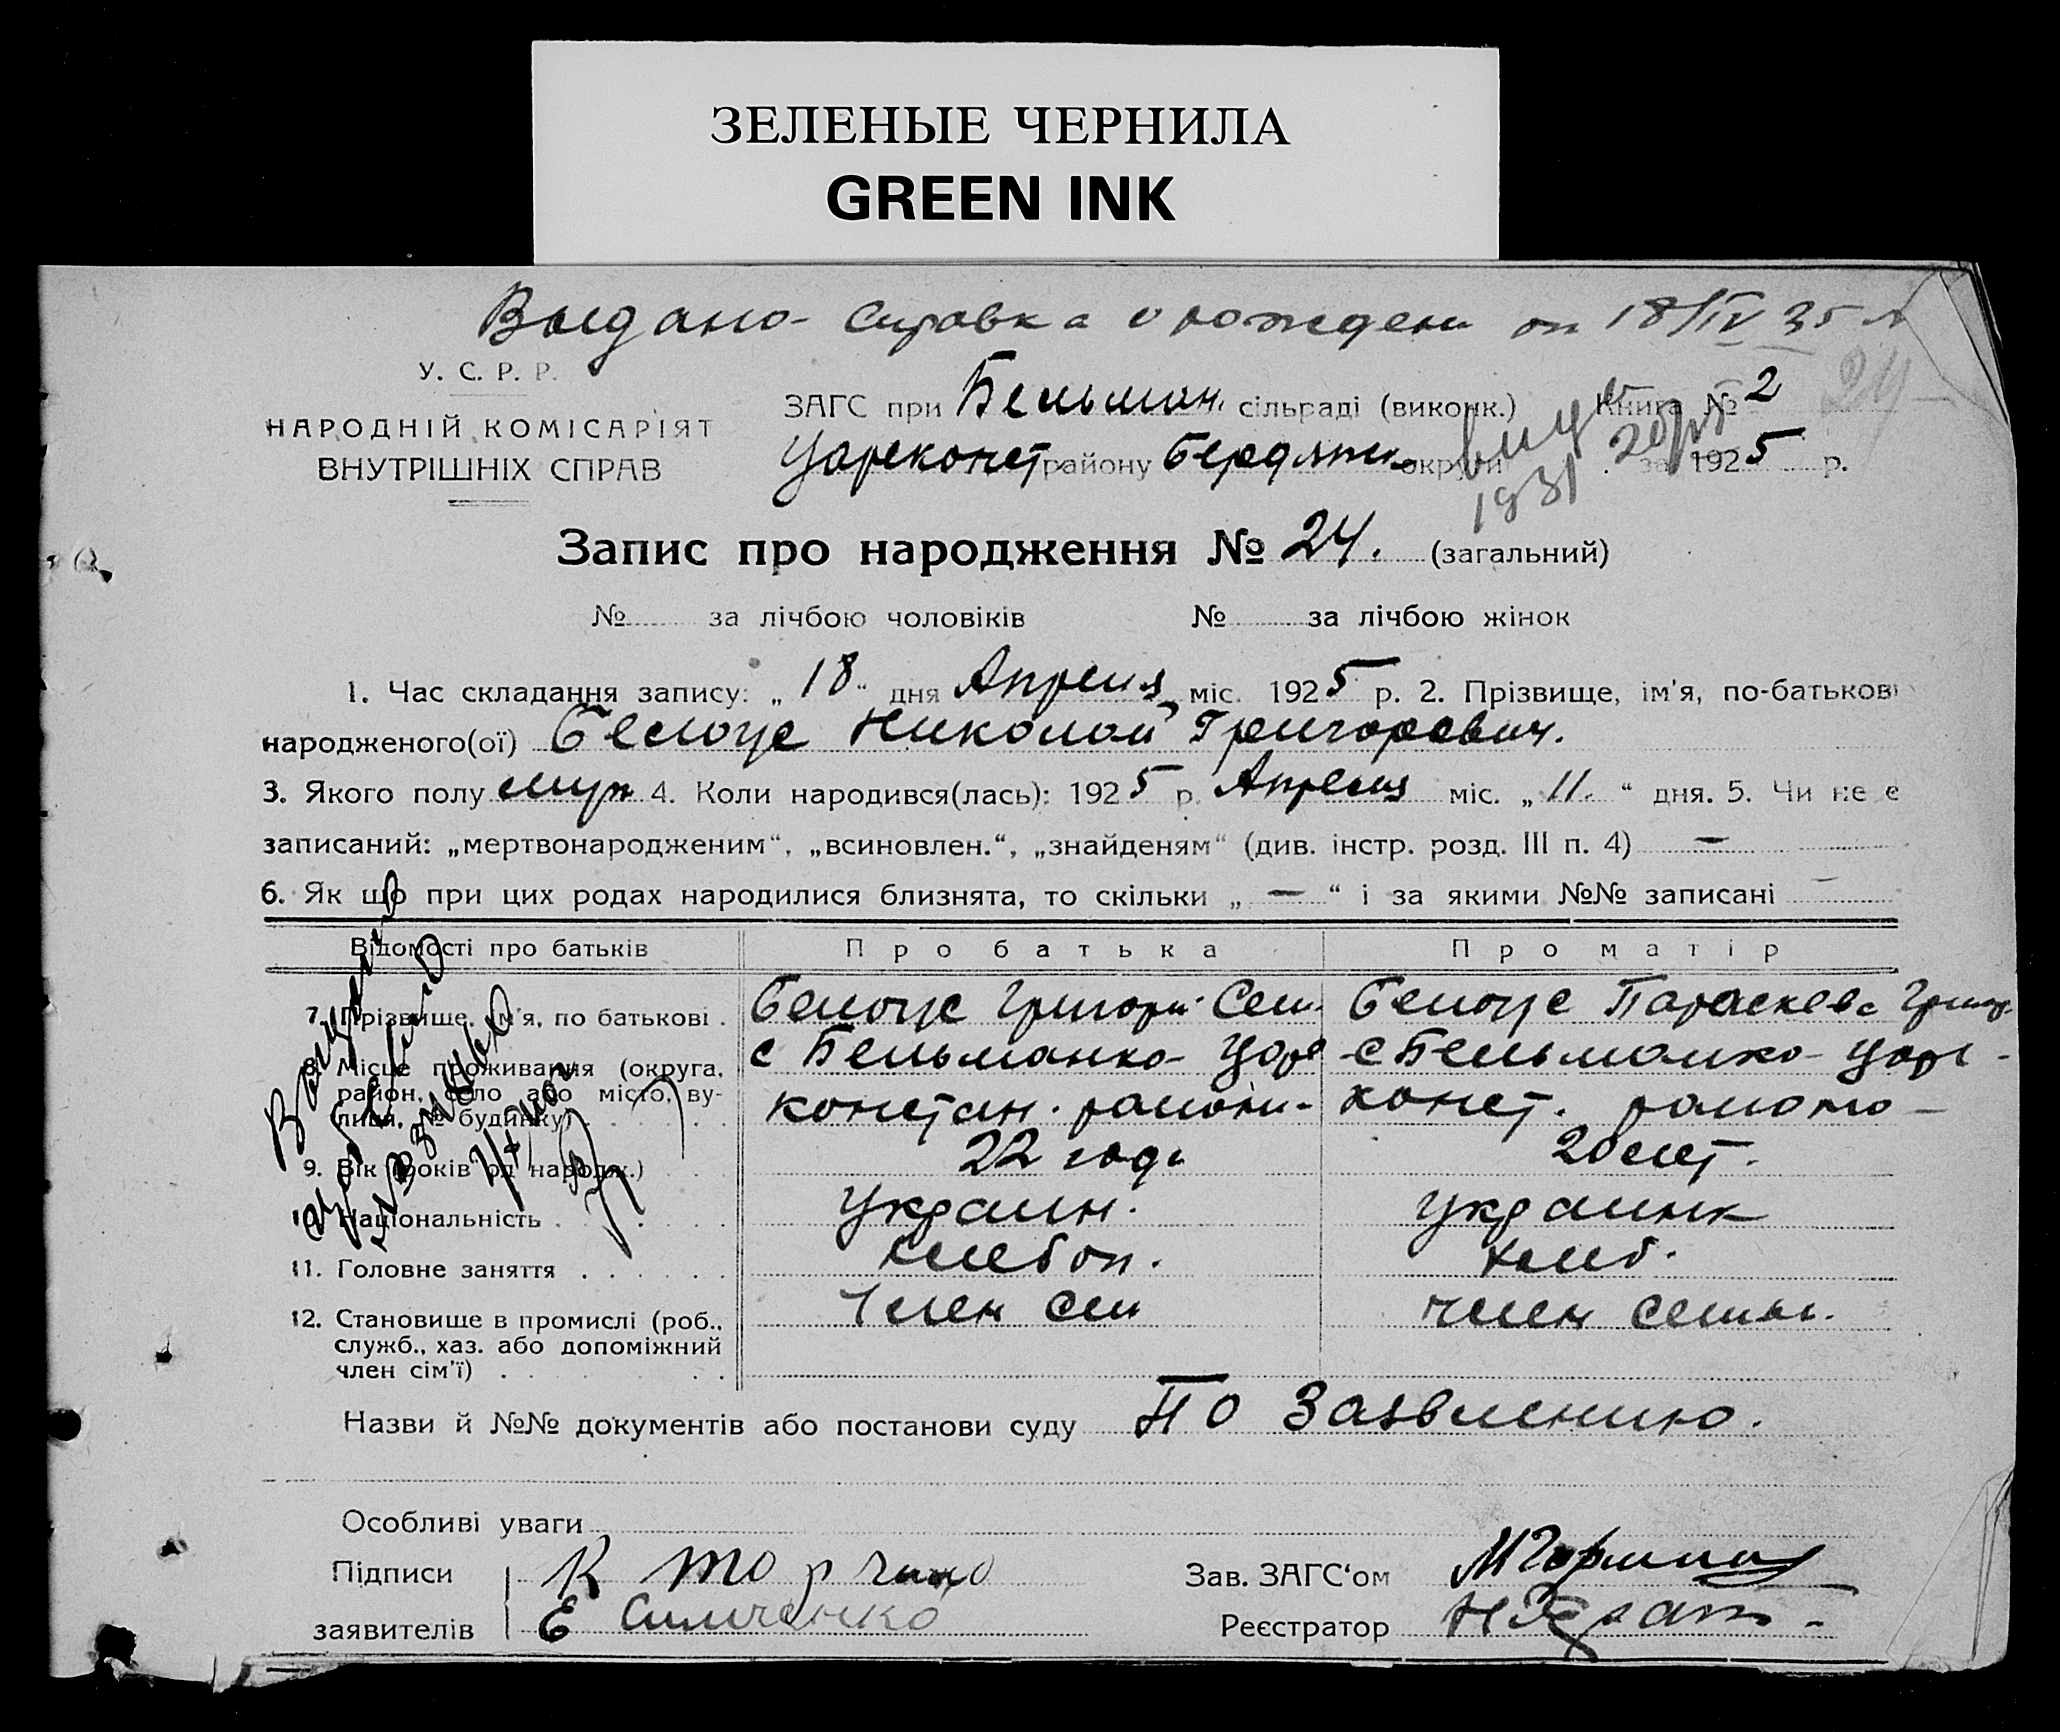 ЗЕЛЕНЫЕ ЧЕРНИЛА
GREEN INK
Выдано справка о рождени 18/IV 35
24
У. С. Р. Р.
НАРОДНІЙ КОМІСАРІЯТ
ВНУТРІШНІХ СПРАВ
ЗАГС при Бельман. сільраді (виконк.) Книга № 2
Цареконст. району Бердянск округи за 1925 р.
1931
Запис про народження № 24. (загальний)
№ за лічбою чоловіків № за лічбою жінок
1. Час складання запису: „ 18 “ дня Апреля міс. 1925 р. 2. Прізвище, ім'я, по-батькові
народженого(ої) Белоус Николай Григоревич.
3. Якого полу муж 4. Коли народився(лась): 1925 р. Апреля міс. „ 11. “ дня. 5. Чи не є
записаний: „мертвонародженим“, „всиновлен.“, „знайденям“ (див. інстр. розд. III п. 4) —
6. Як що при цих родах народилися близнята, то скільки „ — “ і за якими №№ записані —
Відомості про батьків Про батька Про матір
7. Прізвище, ім'я, по батькові . Белоус Григори Сем. Белоус Параскева Григор.
8. Місце проживання (округа, район, село або місто, вулиця, № будинку) с Бельманко- Царе констан. району- с Бельманко- Царе- конст. району-
9. Вік (років од народж.) 22 года 20 лет.
10. Національність Украин. Украинк
11. Головне заняття Хлебоп. Хлеб.
12. Становище в промислі (роб., служб., хаз. або допоміжний член сім'ї) Член сем Член семьи.
Назви й №№ документів або постанови суду По Заявлению.
Особливі уваги
Підписи К Торчило Зав. ЗАГС‘ом
заявителів Е Симченко Реєстратор